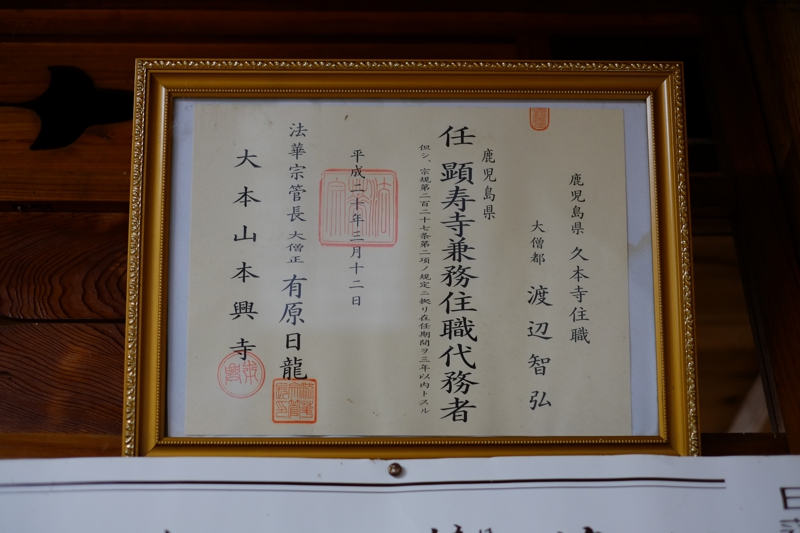 鹿児島県 久本寺住職
大僧都 渡辺智弘
鹿児島県
任 顕寿寺兼務住職代務者
但シ、宗規第二百二十七条第二項ノ規定ニ拠リ在任期間ヲ三年以内トスル
平成二十年三月十二日
法華宗管長 大僧正 有原日龍
大本山本興寺